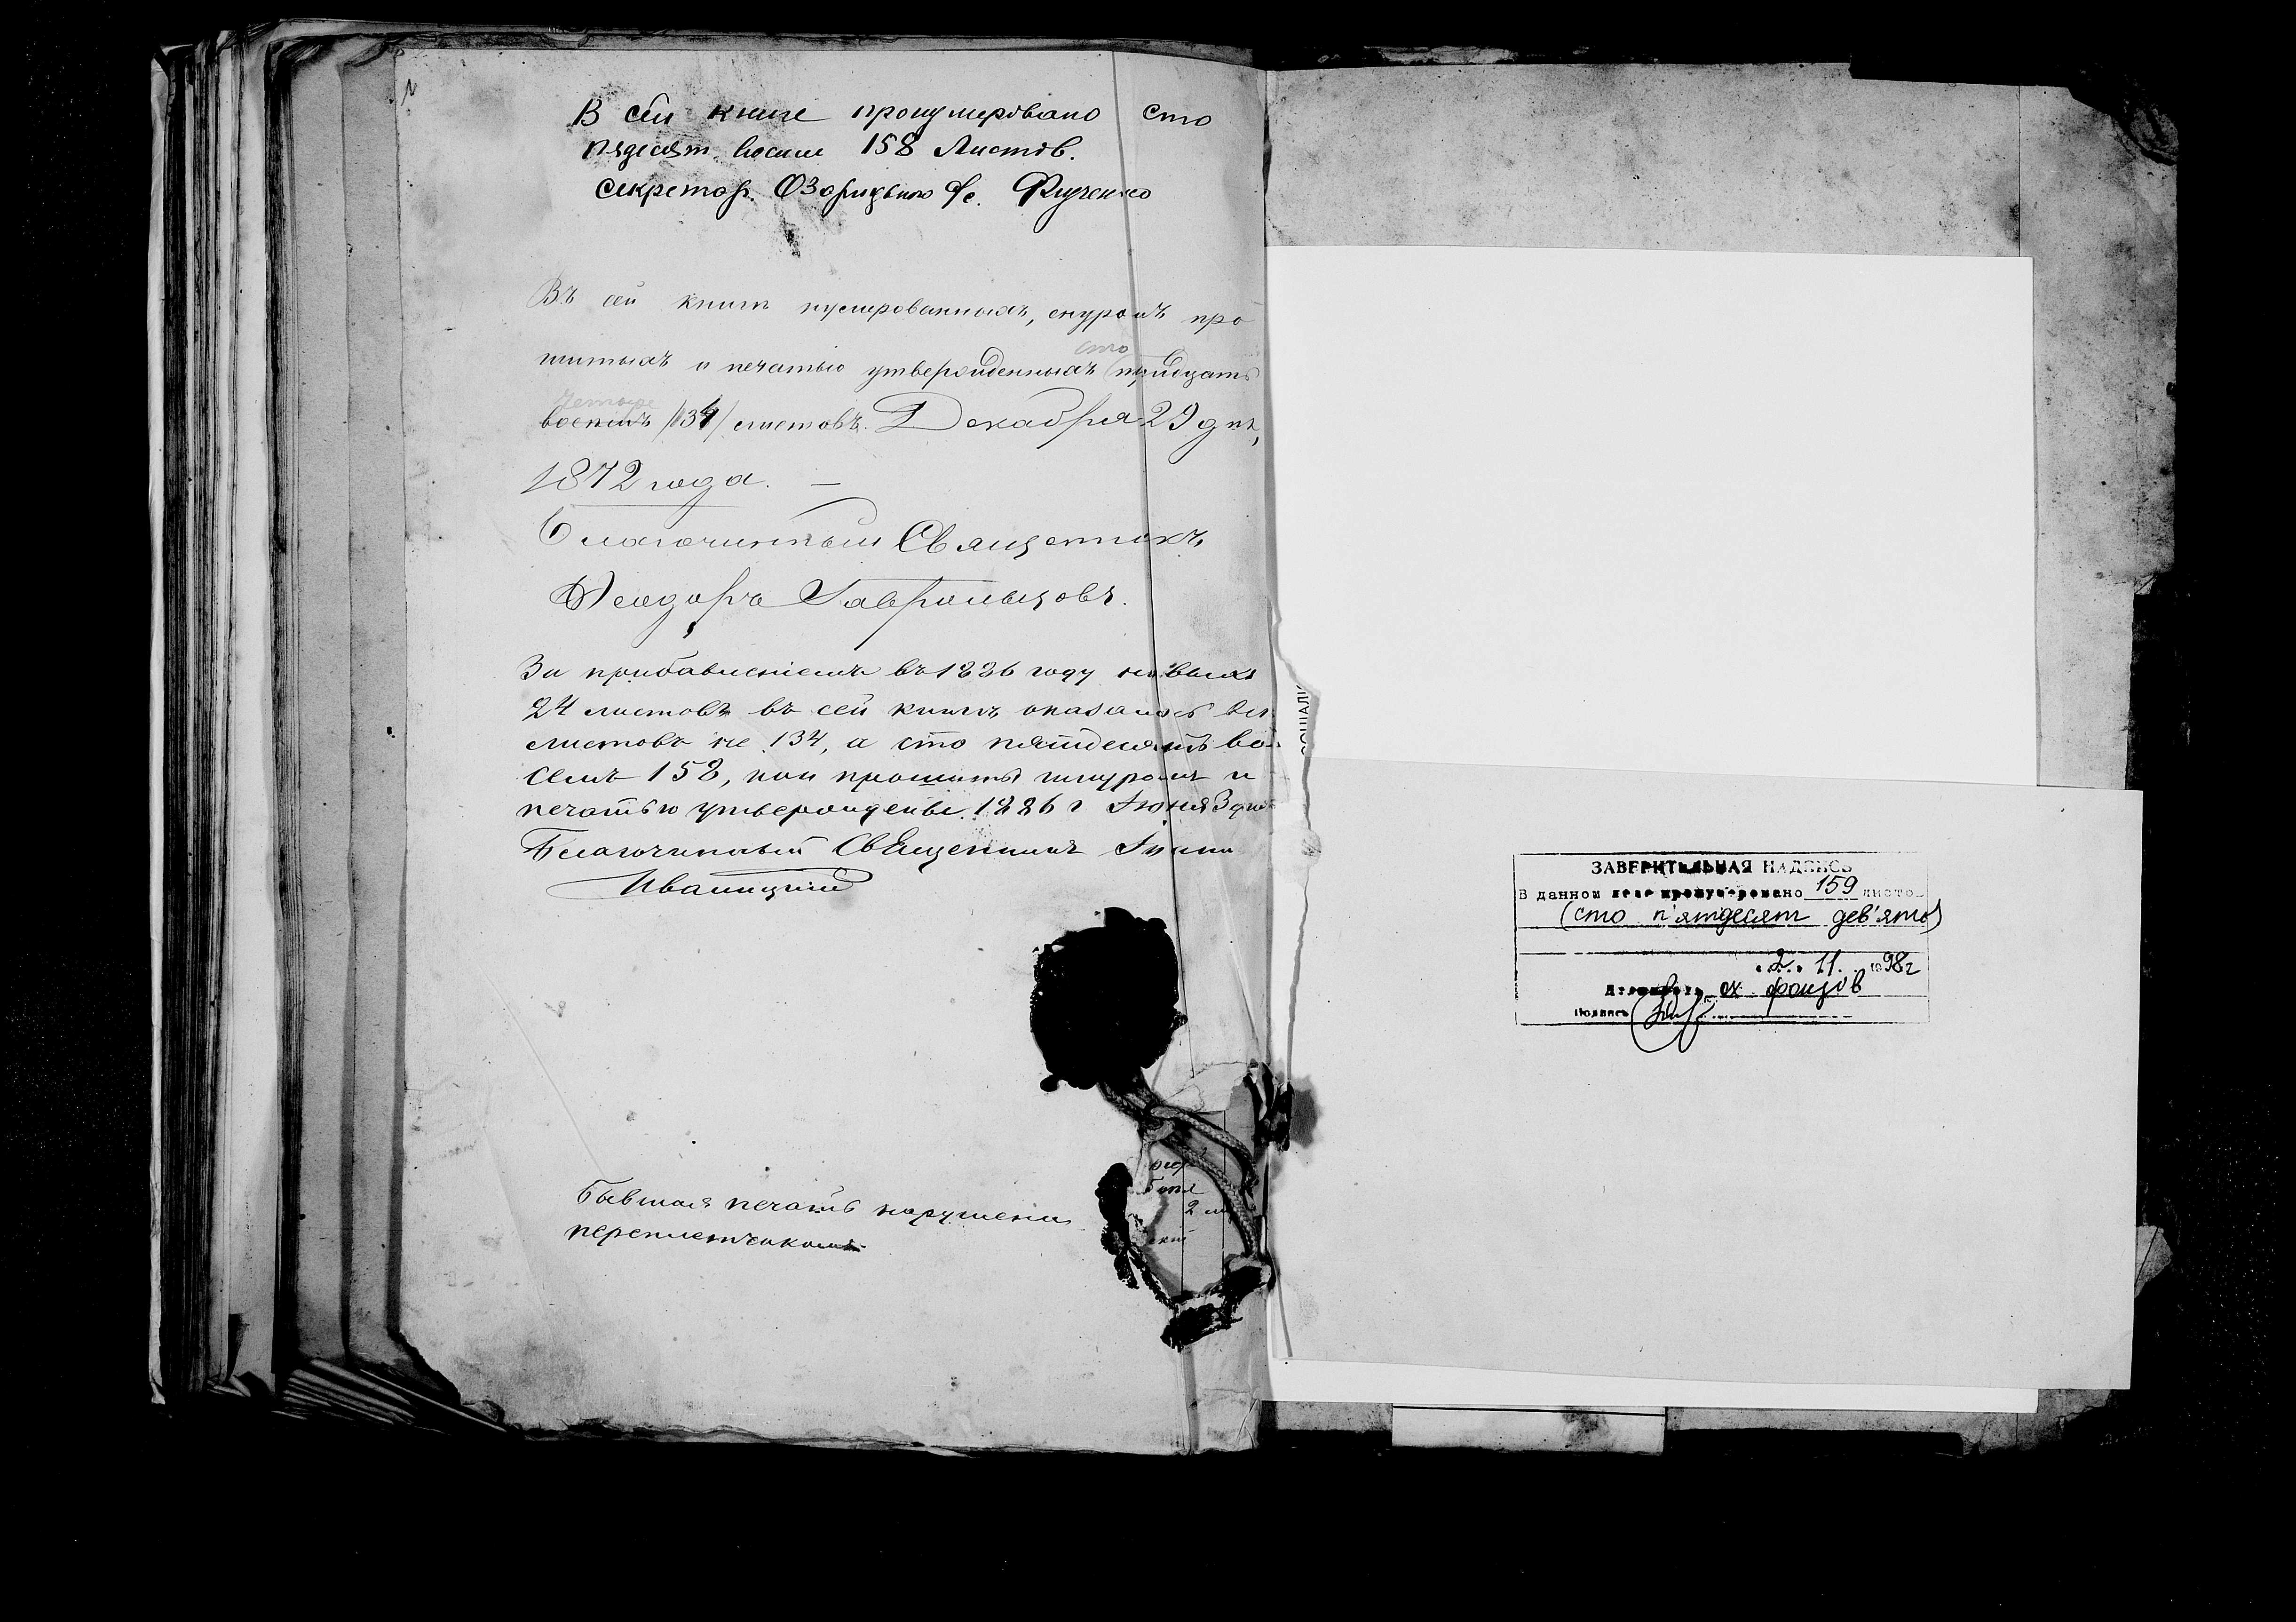 В сей книге пронумеровано сто
пядесят восим 158 Листов.
секретар.
Въ сей книгѣ нумерованныхъ, снуромъ про
шитыхъ и печатью утвержденныхъ сто тридцать
четыре восемь /134/ листовъ. Декабря 29 дня,
1872 года. —
Благочинный Священникъ
Феодоръ
За прибавленіемъ въ 1886 году новыхъ
24 листовъ въ сей книгѣ оказалось
листовъ не 134, а сто пятьдесятъ во
семь 158, кои прошиты шнуромъ и
печатью утверждены. 1886 г Іюня 3 дня
Благочинный Священникъ
Иваницкий
Бывшая печать нарушена
переплетчикомъ
2
ЗАВЕРИТЕЛЬНАЯ НАДПИСЬ
В данном деле пронумеровано 159 листов
(сто п'ятдесят дев'ять)
2. 11. 1998г
Должность фондів
Подпись